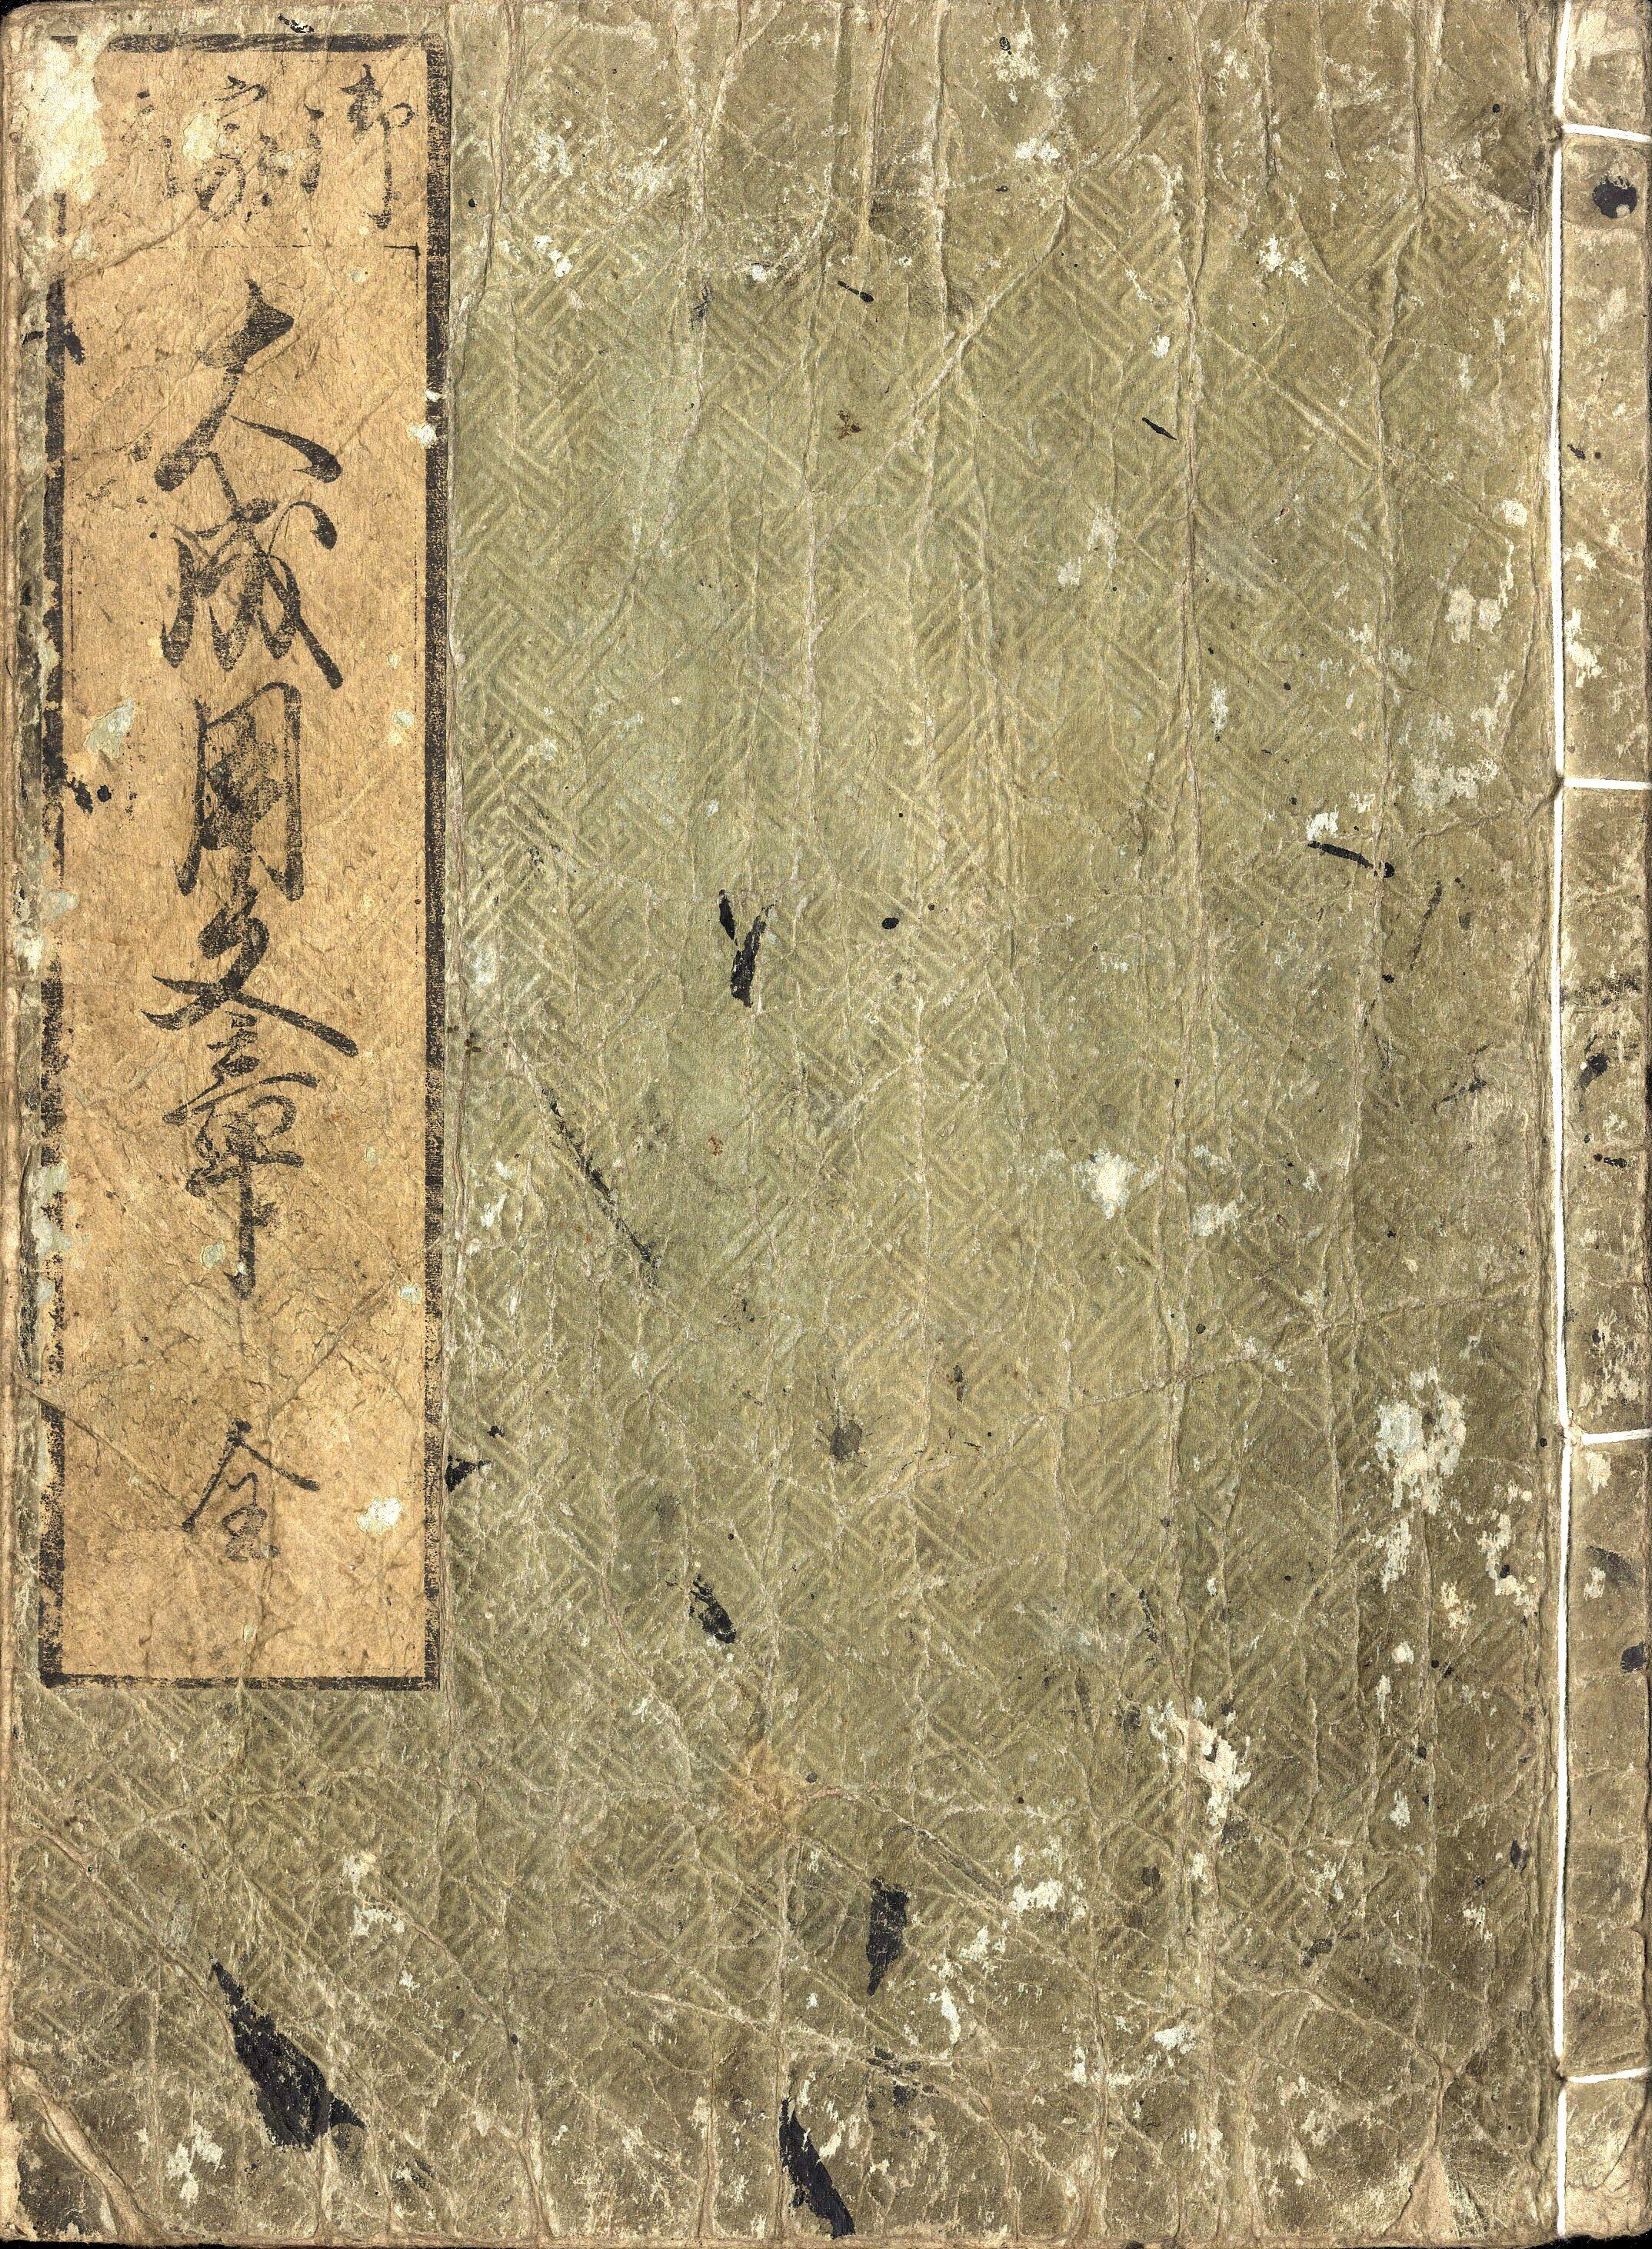 御家
大成用文章 全